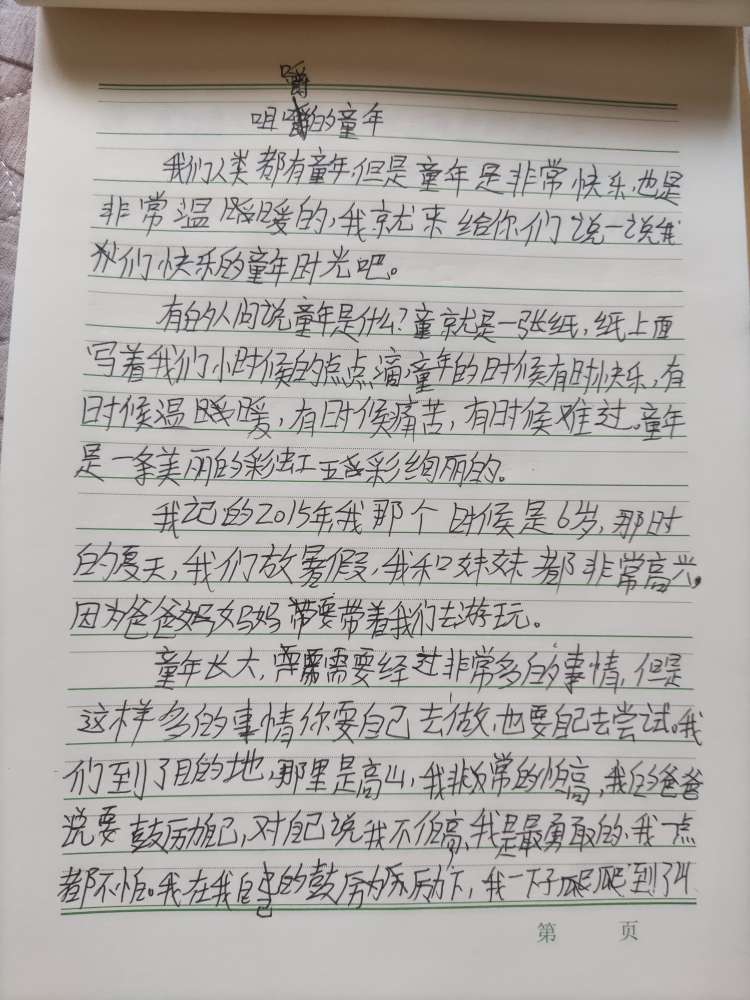 嚼
咀嚼的童年
我们人类都有童年,但是童年是非常快乐,也是
非常温暖暖的,我就来给你们说一说我
们快乐的童年时光吧。
有的人问说童年是什么?童就是一张纸,纸上面
写着我们小时候的点点滴,童年的时候有时快乐,有
时候温暖暖,有时候痛苦,有时候难过。童年
是一条美丽的彩虹五彩绚丽的。
我记的2015年,我那个时候是6岁,那时
的夏天,我们放暑假,我和妹妹都非常高兴,
因为爸爸妈妈妈带要带着我们去游玩。
童年长大,需要经过非常多的事情,但是
这样多的事情你要自己去做,也要自己去尝试。我
们到了目的地,那里是高山,我非常的怕高,我的爸爸
说要鼓励自己,对自己说我不怕高,我是最勇敢的,我一点
都不怕。我在我自己的鼓励下,我一下子爬爬到了山
第 页